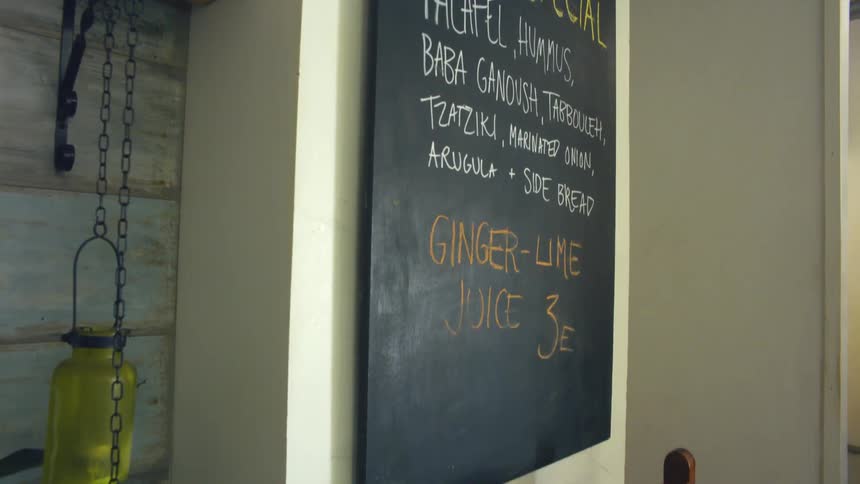 SPECIAL
FALAFEL, HUMMUS,
BABA GANOUSH, TABBOULEH,
TZATZIKI, MARINATED ONION,
ARUGULA + SIDE BREAD
GINGER-LIME
JUICE 3E